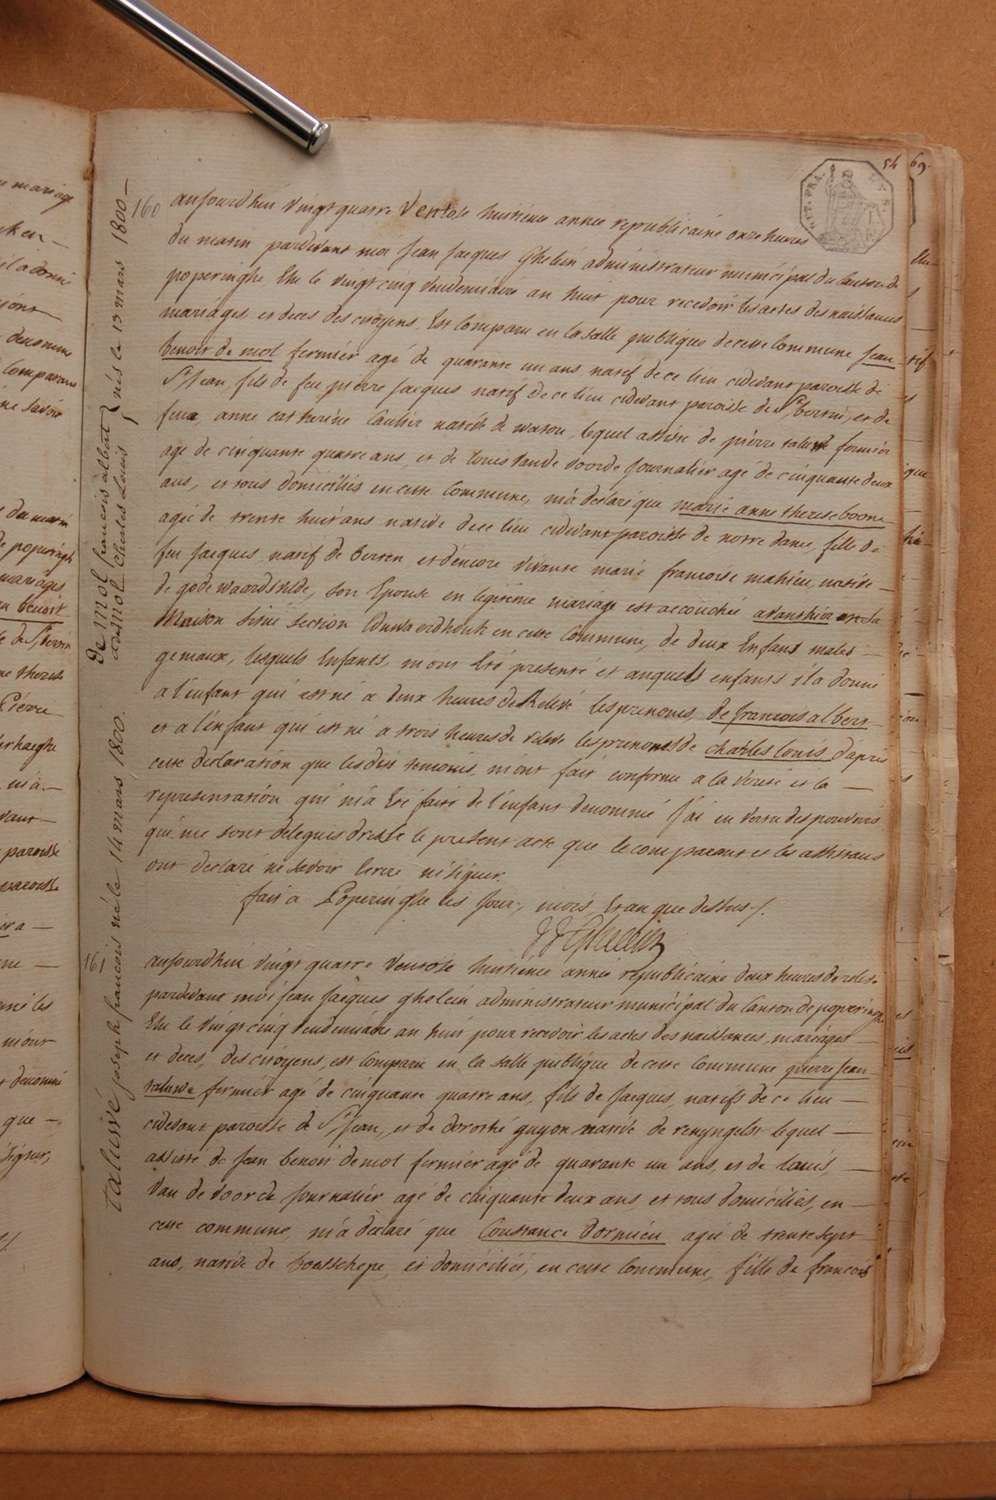 54
69.
160
aujourdhui vingt quatre Ventose huitieme année republicaine onze heures
du matin pardevant moi Jean Jacques Ghelein administrateur municipal du Canton de
poperinghe Elu le vingt cinq vendemiaire an huit pour recevoir les actes des naissances
mariages et deces des citoyens Est Comparu en la salle publique de cette Commune Jean
benoit de mol fermier agé de quarante un ans natif de ce lieu cidevant paroisse de
St Jean, fils de feu pierre Jacques natif de ce lieu cidevant paroisse de St bertin, et de
feue anne catherine Caulier natée de watou, lequel assisté de pierre taluve fermier
agé de cinquante quatre ans, et de Louis Vande Voorde Journalier agé de cinquante deux
ans, et tous domiciliés en cette Commune, m'a declaré que marie anne therese boone
agée de trente huit ans native de ce lieu cidevant paroisse de notre dame, fille de
feu Jacques natif de berten et d'encore vivante marie francoise mahieu native
de godewaersvelde, son Epouse en légitime mariage est accouchée avant hier en sa
Maison sise section Couwaerdhouk en cette Commune, de deux Enfans males
gemeaux, lesquels Enfants m'ont Eté presenté et auquels enfants il a donné
a l'enfant qui est né a deux heures de Relevé les prenoms de francois albert
et a l'enfant qui est né a trois heures de relevé les prenoms de charles louis, d'après
cette declaration que lesdits temoins m'ont fait conforme a la verité et la
representation qui m'a Eté faite de l'enfant denommé J'ai en vertu des pouvoirs
qui me sont delegués dressé le present acte que le comparant et les assistans
ont declaré ne savoir ecrire ni signer.
fait à Poperinghe les Jour, mois, et an que dessus ./.
JJ Ghelein
161
aujourdhui vingt quatre Ventose huitieme année republicaine deux heures de relevé
pardevant moi Jean Jacques ghelein administrateur municipal du Canton de poperinghe
Elu le vingt cinq vendemiaire an huit pour recevoir les actes des naissances, mariages
et deces des citoyens, est Comparu en la salle publique de cette commune pierre Jean
taluve fermier agé de cinquante quatre ans, fils de Jacques, natifs de ce lieu
cidevant paroisse de St Jean, et de dorothe guyon native de renyngelst lequel
assisté de Jean benoit demol fermier agé de quarante un ans, et de Louis
Van de Voorde Journalier agé de cinquante deux ans, et tous domiciliés, en
cette commune, m'a declaré que Constance dornieu agée de trente sept
ans, native de boesschepe, et domiciliée, en cette Commune, fille de francois
de Mol francois albert
de Mol Charles Louis } nés le 13 mars 1800
Taluve joseph francois né le 14 mars 1800.